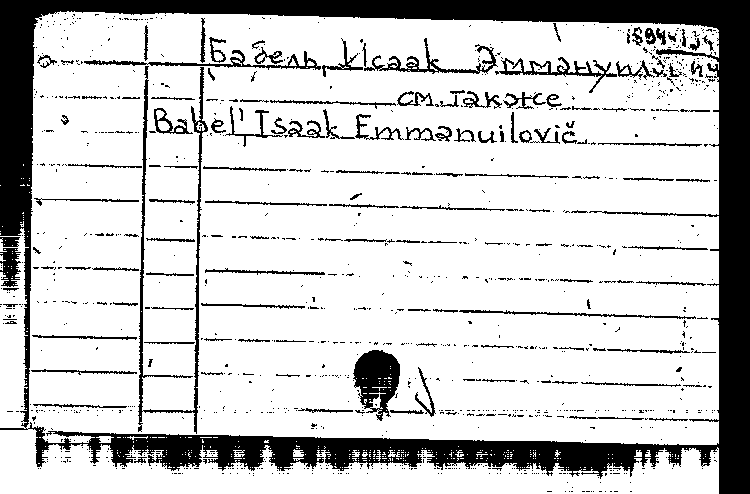 Бабель, Исаак Эммануилович
см. также
Babel' Isaak Emmanuilovič